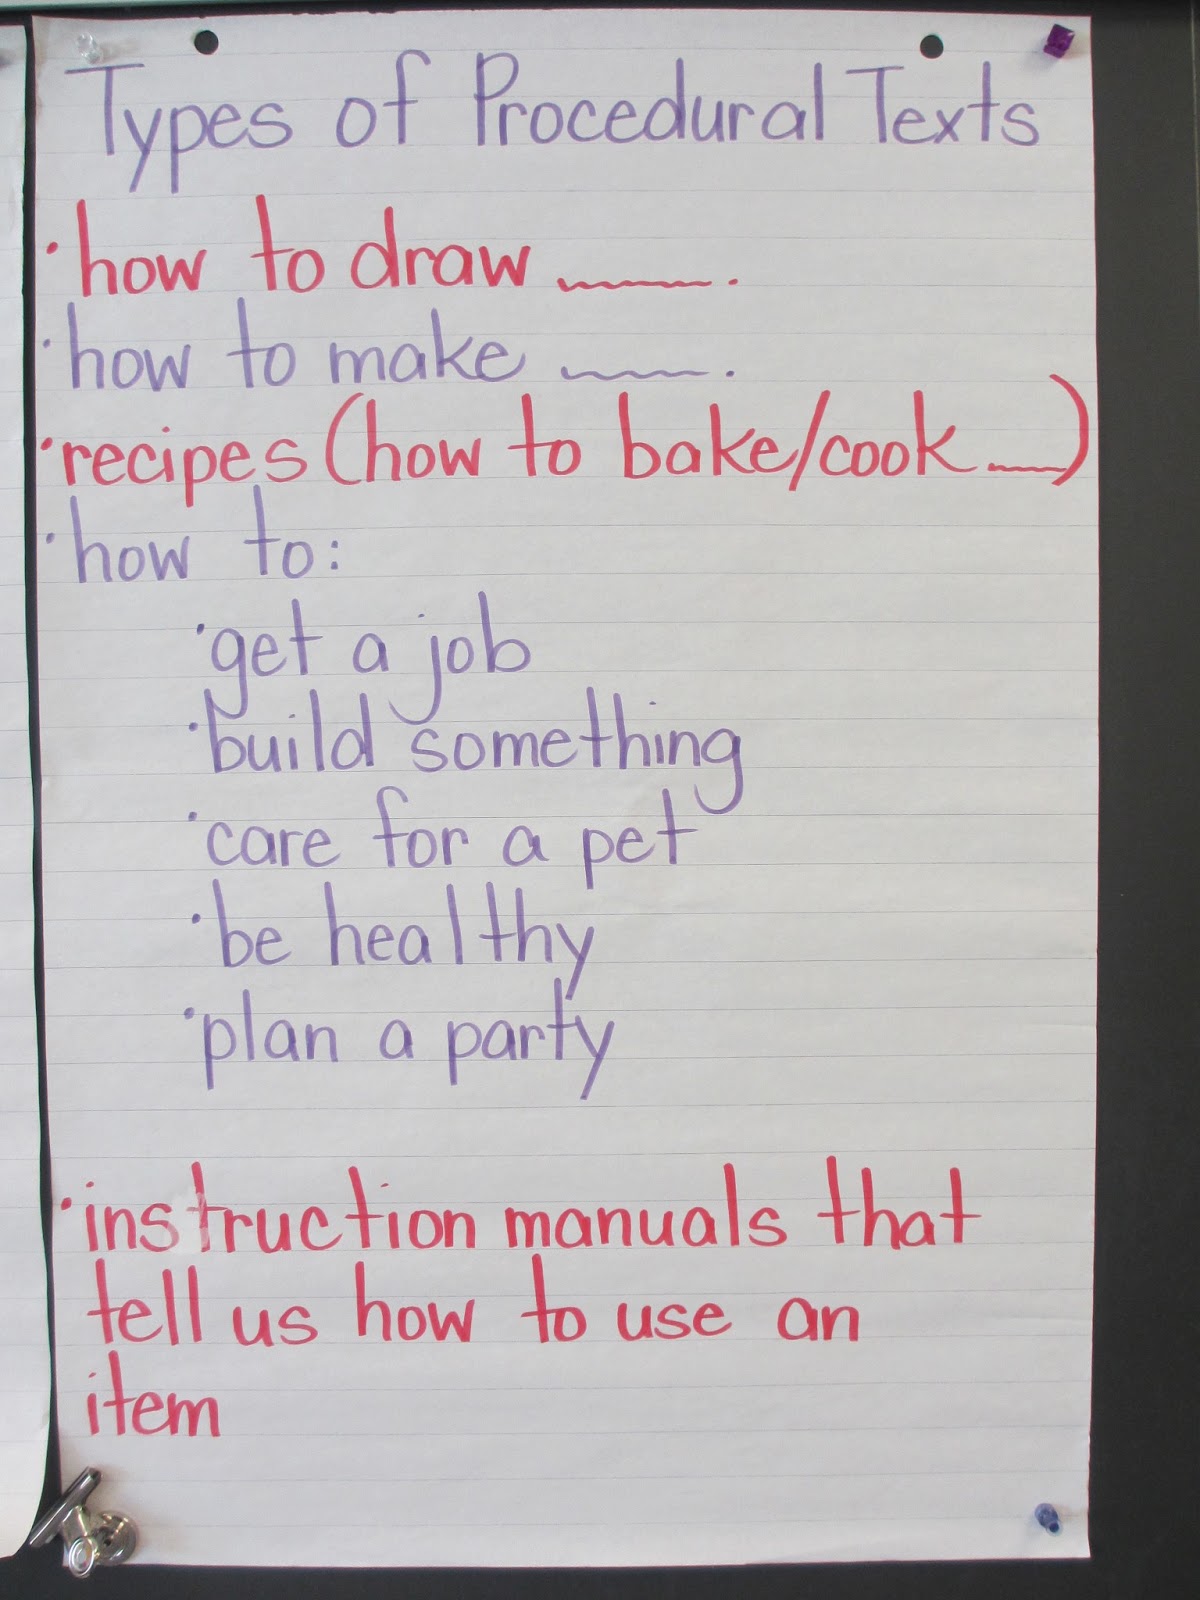 Types of Procedural Texts
·how to draw ____.
·how to make ____.
·recipes (how to bake/cook ___)
·how to:
·get a job
·build something
·care for a pet
·be healthy
·plan a party
·instruction manuals that
tell us how to use an
item